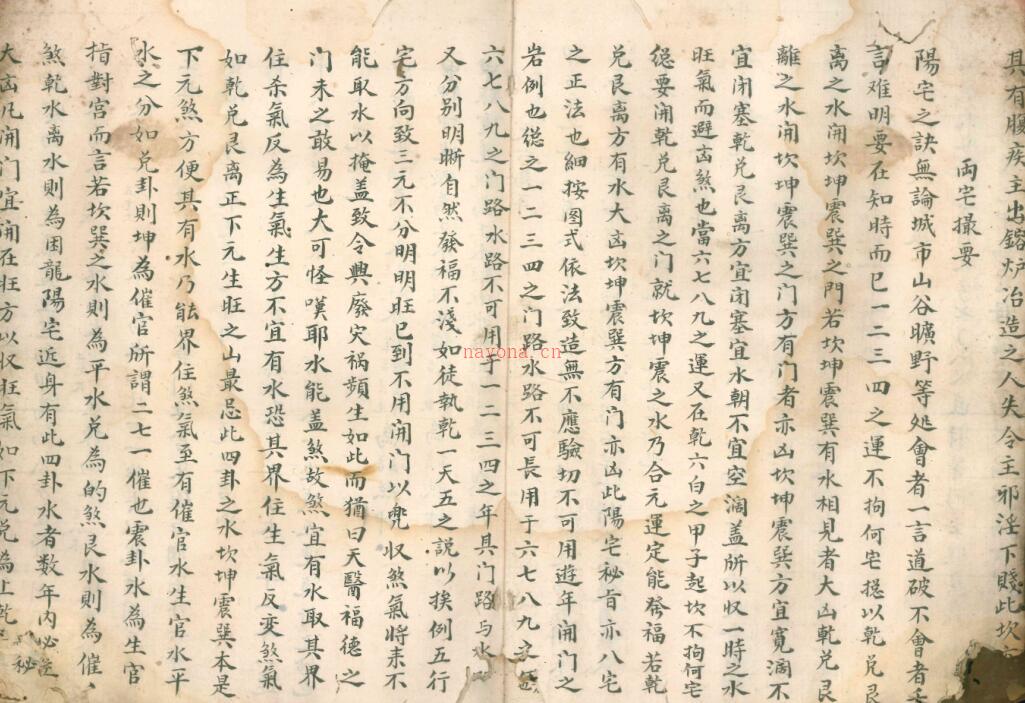 其有腹疾主出鎔炉冶造之人失令主邪淫下賤此坎
両宅撮要
陽宅之訣無論城市山谷曠野等処會者一言道破不會者
言难明要在知時而已一二三四之運不拘何宅揔以乾兑艮
离之水開坎坤震巽之門若坎坤震巽有水相見者大凶乾兑艮
離之水開坎坤震巽之门方有门者亦凶坎坤震巽方宜寛濶不
宜闭塞乾兑艮离方宜闭塞宜水朝不宜空濶盖所以収一時之水
旺氣而避凶煞也當六七八九之運又在乾六白之甲子起坎不拘何宅
總要開乾兑艮离之门就坎坤震之水乃合元運定能發福若乾
兑艮离方有水大凶坎坤震巽方有门亦凶此陽宅秘旨亦八宅
之正法也細按图式依法致造無不應驗切不可用遊年開门之
岩例也揔之一二三四之门路水路不可長用于六七八九之
六七八九之门路水路不可用于一二三四之年具门路与水
又分别明晰自然發福不淺如徒執乾一天五之説以挨例五行
宅方向致三元不分明明旺已到不用開门以兜収煞氣将来不
能取水以掩盖致令興廢灾祸頻生如此而猶曰天醫福德之
门未之敢易也大可怪嘆耶水能盖煞故煞宜有水取其界
住杀氣反為生氣生方不宜有水恐其界住生氣反变煞氣
如乾兑艮离正下元生旺之山最忌此四卦之水坎坤震巽本是
下元煞方便其有水乃能界住煞氣至有催官水生官水平
水之分如兑卦則坤為催官所謂二七一催也震卦水為生官
指對宫而言若坎巽之水則為平水兑為的煞艮水則為催
煞乾水离水則為困龍陽宅近身有此四卦水者数年内必
秘
大凶凡開门宜開在旺方以収旺氣如下元兑為上乾
nayona.cn